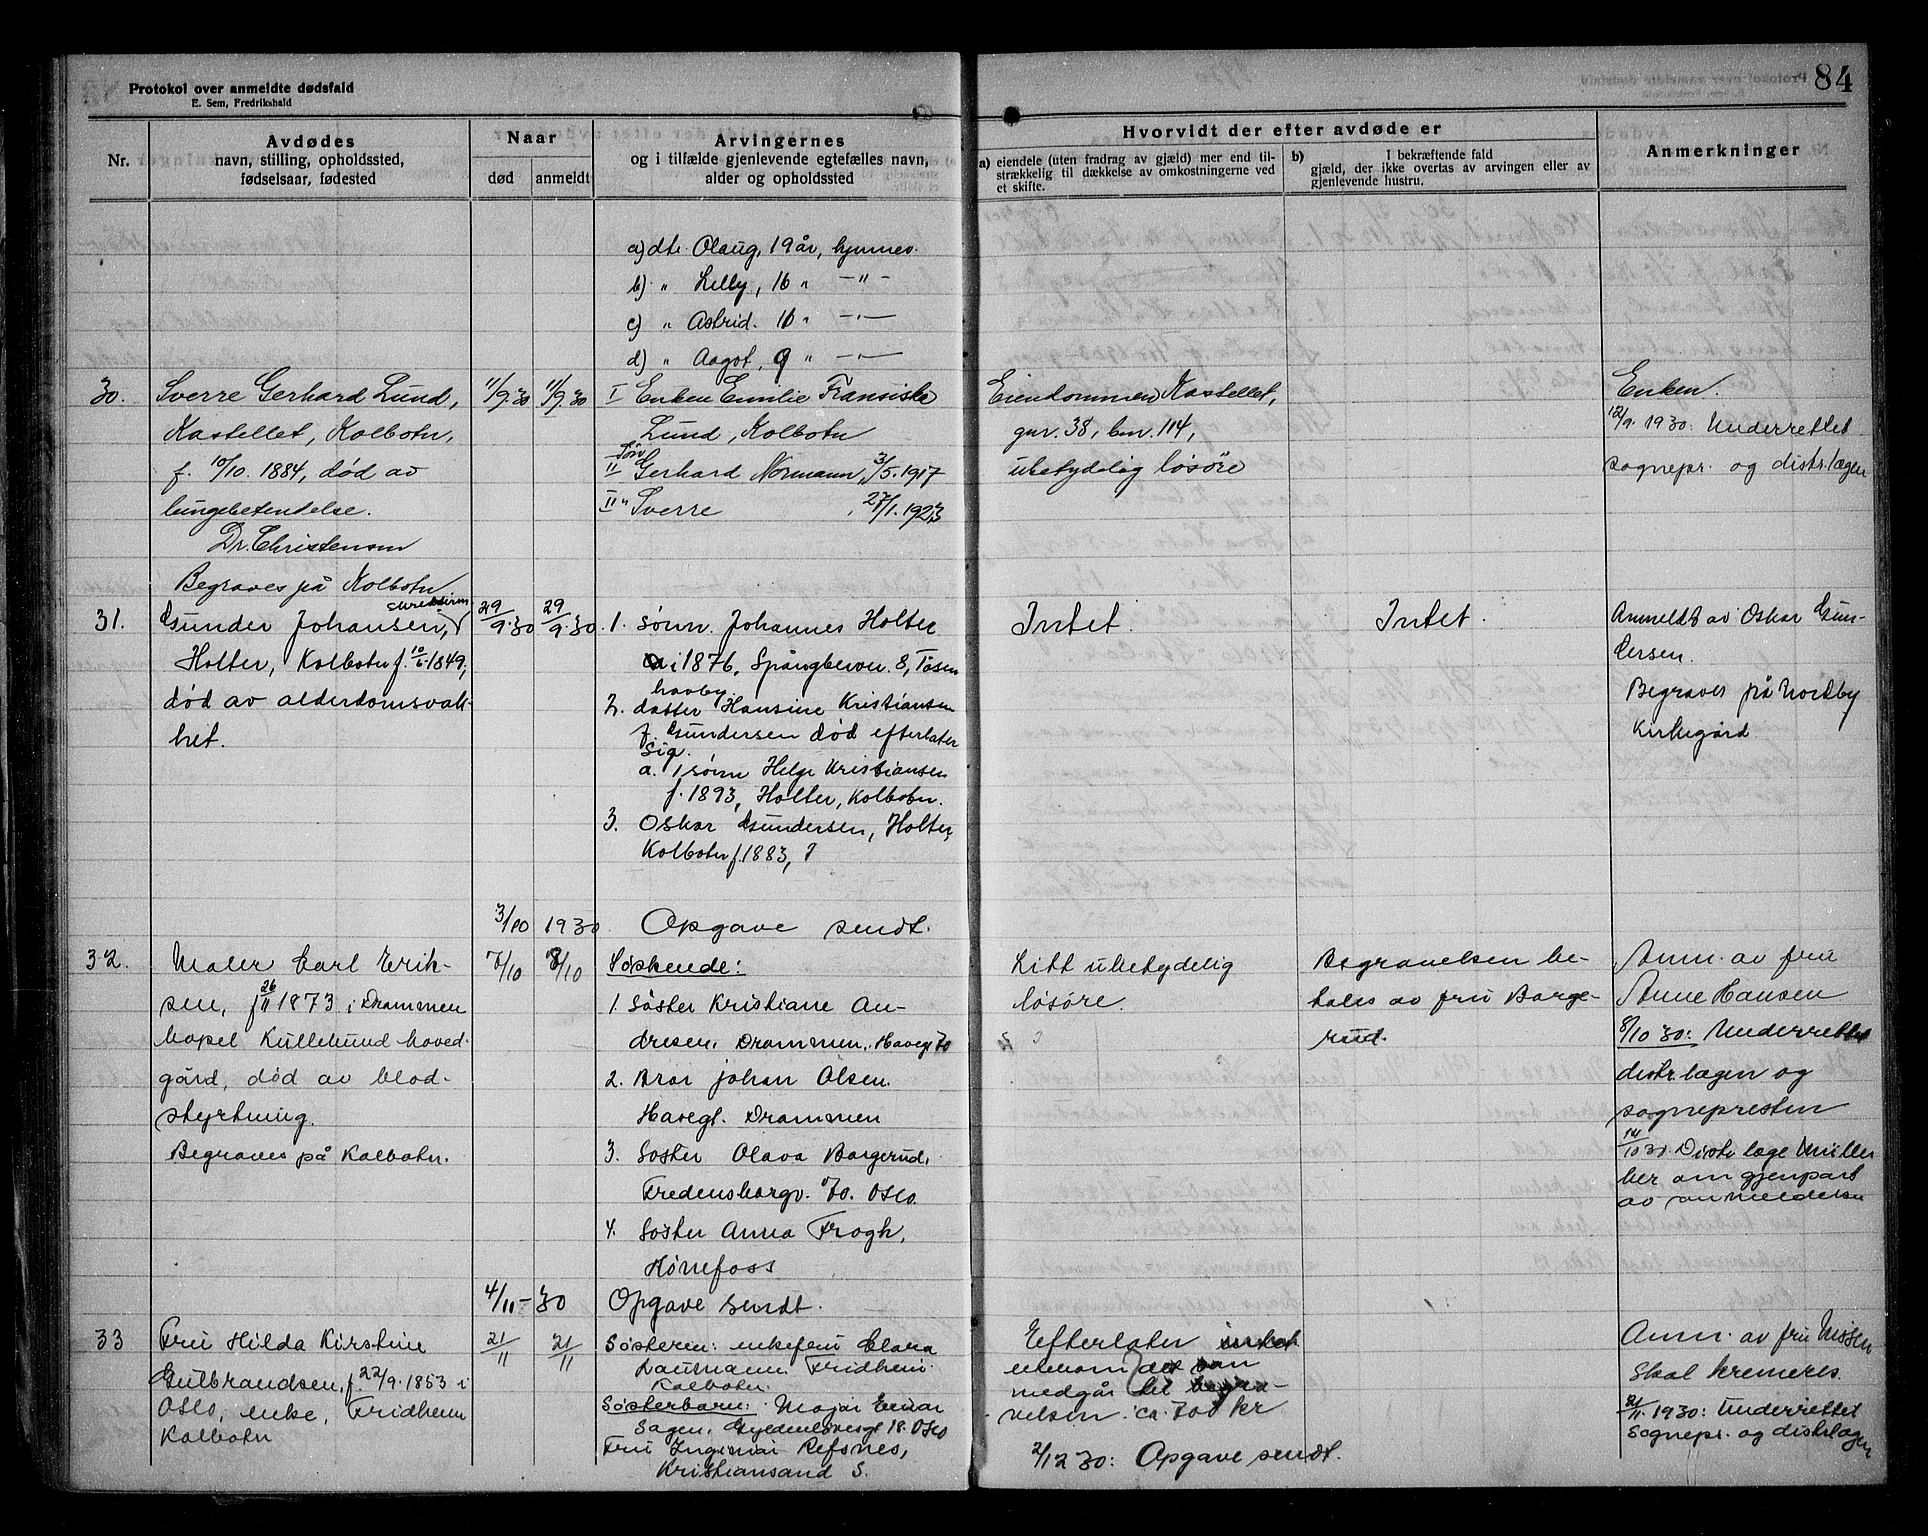 Protokol over anmeldte dødsfald
E. Sem, Fredrikshald
84
Nr.
Avdødes
navn, stilling, opholdssted,
fødselsaar, fødested
Naar
død
anmeldt
Arvingernes
og i tilfælde gjenlevende egtefælles navn,
alder og opholdssted
Hvorvidt der efter avdøde er
a) eiendele (uten fradrag av gjæld) mer end til-
strækkelig til dækkelse av omkostningerne ved
et skifte.
b) I bekræftende fald
gjæld, der ikke overtas av arvingen eller av
gjenlevende hustru.
Anmerkninger
a) dtr. Olaug, 19 år, hjemmev.
b) " Lelly, 16 " — " —
c) " Astrid. 16 " — " —
d) " Aagot, 9 " — " —
30.
Sverre Gerhard Lund,
Kastellet, Kolbotn,
f. 10/10. 1884, død av
lungebetendelse.
Dr. Christensen
Begraves på Kolbotn
11/9.30
11/9.30
I Enken Emilie Fransiska
Lund, Kolbotn
Sön
II Gerhard Normann, 3/5.1917
II " Sverre, 27/1.1923
Eiendommen Kastellet,
gnr. 38, bnr. 114,
ubetydelig løsøre
Enken.
12/9. 1930: Underrettet
sognepr. og distr.lægen
31.
Gunder Johansen,
Holter, Kolbotn f. 10/6.1849,
død av alderdomsvak-
het.
29/9.30
29/9.30
1. sønn. Johannes Holter
i 1876, Spångbervn. 8, Tåsen
haveby
2. datter Hansine Kristiansen
f. Gundersen død efterlater
sig.
a. 1 sønn Helge Kristiansen
f. 1893, Holter, Kolbotn.
3. Oskar Gundersen, Holter,
Kolbotn f. 1883,
Intet.
Intet.
Anmeldt av Oskar Gun-
dersen.
Begraves på Nordby
Kirkegård
3/10 1930 Opgave sendt.
32.
Maler Carl Erik-
sen, f 26/11 1873 i Drammen
Kullebund hoved-
gård, død av blod-
styrtning.
Begraves på Kolbotn.
7/10
8/10
Søskende:
1. Søster Kristiane An-
dresen, Drammen, Havegt 70
2. Bror Johan Olsen.
Havegt. Drammen
3. Søster Olava Borgerud,
Fredensborgv. 70. Oslo.
4. Søster Anna Frogh,
Hønefoss
Litt ubetydelig
løsøre.
Begravelsen be-
tales av fru Borge-
rud.
Anm. av fru
Anne Hansen
8/10 30: Underrettet
distr.lægen og
sognepresten
14/10 30. Distr.læge Müller
ber om gjenpart
av anmeldelsen
4/11 - 30 Opgave sendt.
33
Fru Hilda Kirstine
Gulbrandsen, f. 22/9.1853 i
Oslo, enke, Fridheim
Kolbotn
21/11
21/11
Søsteren: enkefru Clara
Fridheim.
Kolbotn.
Søsterbarn: Major Einar
Sagen, Gyldenløvesgt 18. Oslo
Fru Refsnes,
Kristiansand S.
Efterlater intet
utenom det som
medgår til begra-
velsen. ca. 700 kr
2/12 30: Opgave sendt.
Anm. av fru Nissen
Skal kremeres.
21/11. 1930: Underrettet
Sognepr. og distrlægen